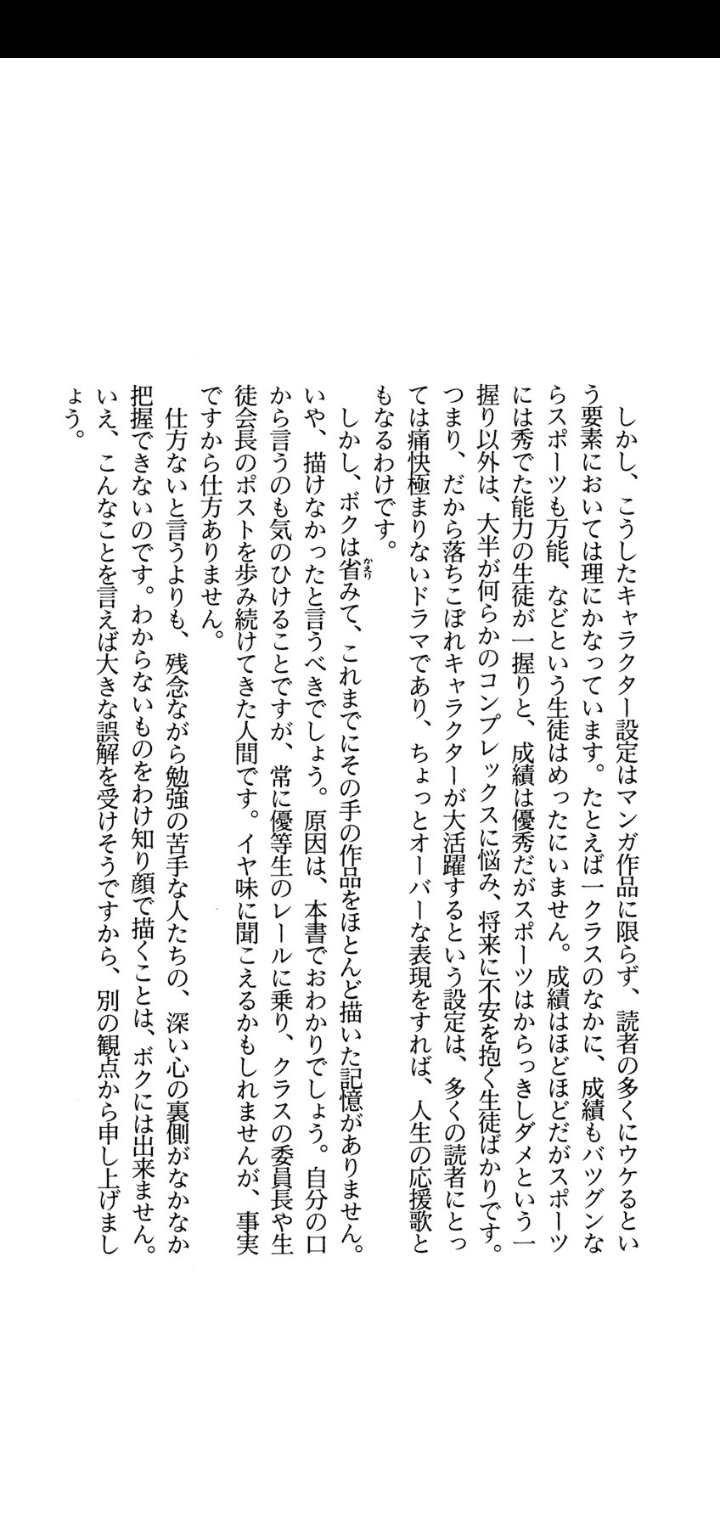 しかし、こうしたキャラクター設定はマンガ作品に限らず、読者の多くにウケるとい
う要素においては理にかなっています。たとえば一クラスのなかに、成績もバツグンな
らスポーツも万能、などという生徒はめったにいません。成績はほどほどだがスポーツ
には秀でた能力の生徒が一握りと、成績は優秀だがスポーツはからっきしダメという一
握り以外は、大半が何らかのコンプレックスに悩み、将来に不安を抱く生徒ばかりです。
つまり、だから落ちこぼれキャラクターが大活躍するという設定は、多くの読者にとっ
ては痛快極まりないドラマであり、ちょっとオーバーな表現をすれば、人生の応援歌と
もなるわけです。
しかし、ボクは省みて、これまでにその手の作品をほとんど描いた記憶がありません。
かえり
いや、描けなかったと言うべきでしょう。原因は、本書でおわかりでしょう。自分の口
から言うのも気のひけることですが、常に優等生のレールに乗り、クラスの委員長や生
徒会長のポストを歩み続けてきた人間です。イヤ味に聞こえるかもしれませんが、事実
ですから仕方ありません。
仕方ないと言うよりも、残念ながら勉強の苦手な人たちの、深い心の裏側がなかなか
把握できないのです。わからないものをわけ知り顔で描くことは、ボクには出来ません。
いえ、こんなことを言えば大きな誤解を受けそうですから、別の観点から申し上げまし
ょう。